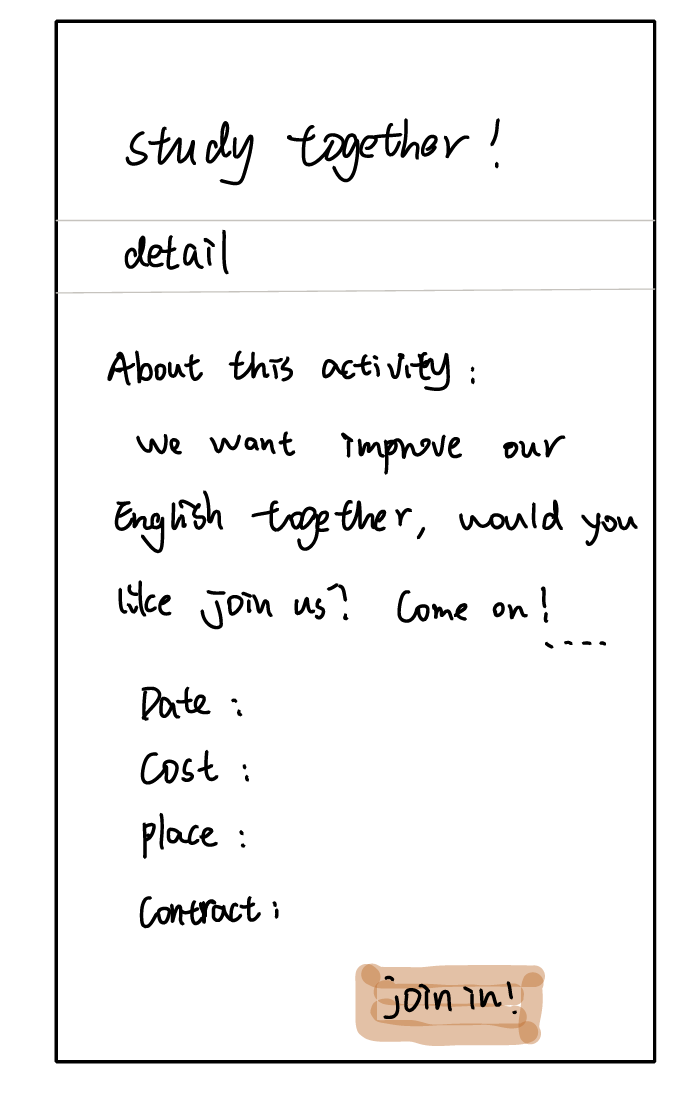 study together!
detail
About this activity:
We want improve our
English together, would you
like join us? Come on!
....
Date:
Cost:
place:
Contract:
join in!